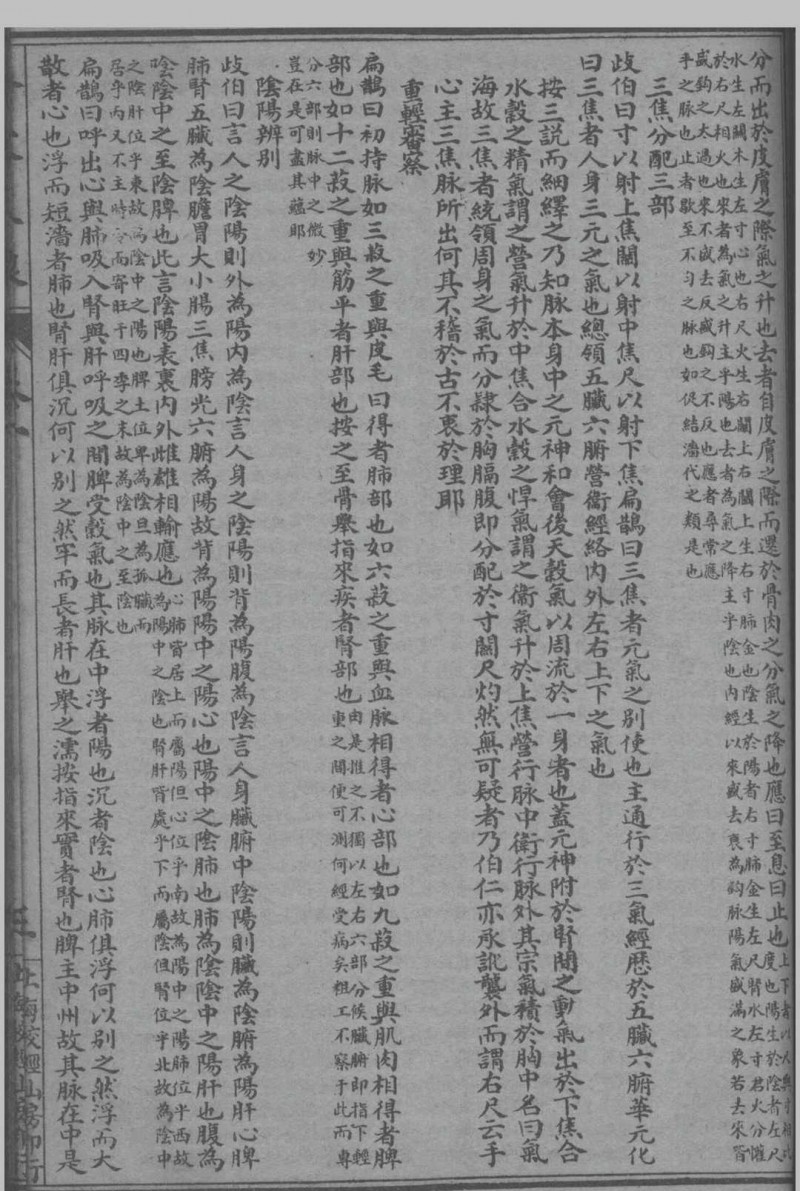 分而出於皮膚之際氣之升也去者自皮膚之際而還於骨肉之分氣之降也應曰至息曰止也
水生左關木生左寸心也右尺火生右關土右關土生右寸肺金也陰生於陽者右寸肺金生左尺腎水左寸君火分權
於右尺相火也來者為氣之升主乎陽也去者為氣之降主乎陰也內經以來盛去衰為鈎脉陽氣盛滿之象若去來皆
盛鈎之太過也來不盛去反盛鈎之不反也應者尋常應
乎之脉也止者歇至不勻之脉也如促結濇代之類是也
三焦分配三部
歧伯曰寸以射上焦關以射中焦尺以射下焦扁鵲曰三焦者元氣之別使也主通行於三氣經歷於五臟六腑華元化
曰三焦者人身三元之氣也總領五臟六腑營衛經絡內外左右上下之氣也
按三説而紬繹之乃知脉本身中之元神和會後天穀氣以周流於一身者也蓋元神附於腎間之動氣出於下焦合
水穀之精氣謂之營氣升於中焦合水穀之悍氣謂之衛氣升於上焦營行脉中衛行脉外其宗氣積於胸中名曰氣
海故三焦者統領周身之氣而分隸於胸膈腹即分配於寸關尺灼然無可疑者乃伯仁亦承訛襲外而謂右尺云手
心主三焦脉所出何其不稽於古不衷於理耶
重輕審察
扁鵲曰初持脉如三菽之重與皮毛曰得者肺部也如六菽之重與血脉相得者心部也如九菽之重與肌肉相得者脾
部也如十二菽之重與筋平者肝部也按之至骨舉指來疾者腎部也
由是推之不獨以左右六部分候臟腑即指下輕
重之間便可測何經受病矣粗工不察于此而專
分六部則脉中之微妙
豈在是可盡其蘊耶
陰陽辨別
歧伯曰言人之陰陽則外為陽內為陰言人身之陰陽則背為陽腹為陰言人身臟腑中陰陽則臟為陰腑為陽肝心脾
肺腎五臟為陰膽胃大小腸三焦膀光六腑為陽故背為陽陽中之陽心也陽中之陰肺也肺為陰陰中之陽肝也腹為
陰陰中之至陰脾也此言陰陽表裏內外雌雄相輸應也
心肺皆居上而屬陽但心位乎南故為陽中之陽肺位乎西故
為陽中之陰也腎肝皆處乎下而屬陰但腎位乎北故為陰中
之陰肝位乎東故為陰中之陽也脾土位卑為陰且為孤臟而
居乎內又不主時令而寄旺于四季之末故為陰中之至陰也
扁鵲曰呼出心與肺吸入腎與肝呼吸之間脾受穀氣也其脉在中浮者陽也沉者陰也心肺俱浮何以別之然浮而大
散者心也浮而短濇者肺也腎肝俱沉何以別之然牢而長者肝也舉之濡按指來實者腎也脾主中州故其脉在中是